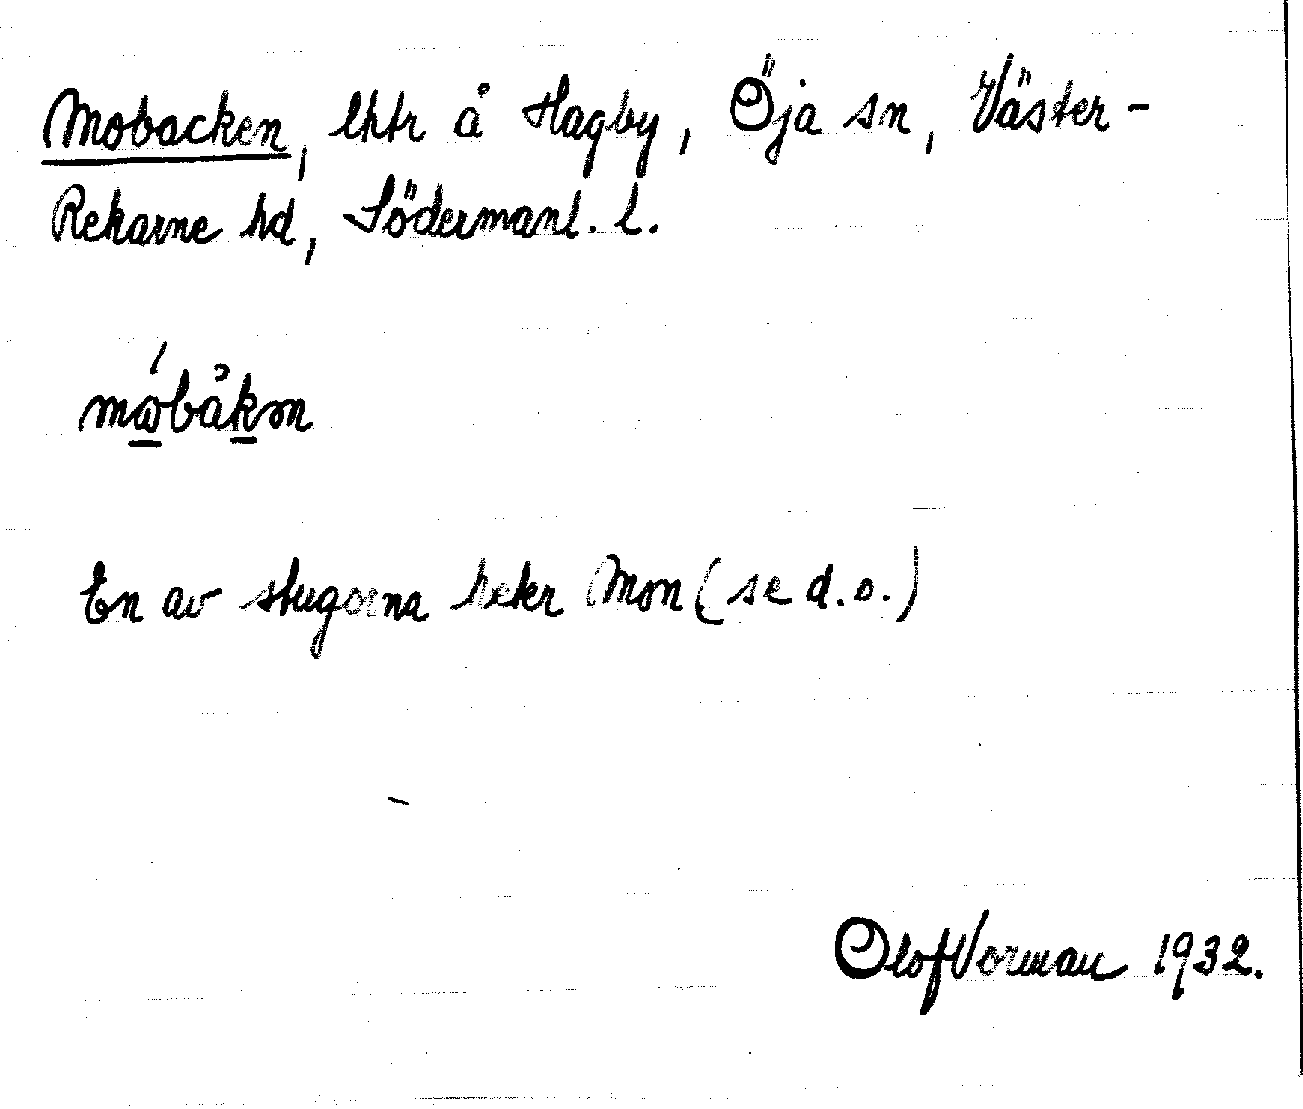 Mobacken, lhtr å Hagby, Öja sn, Väster-
Rekarne hd, Södermanl. l.
En av stugorna heter Mon (se d.o.)
Olof Vorman 1932.